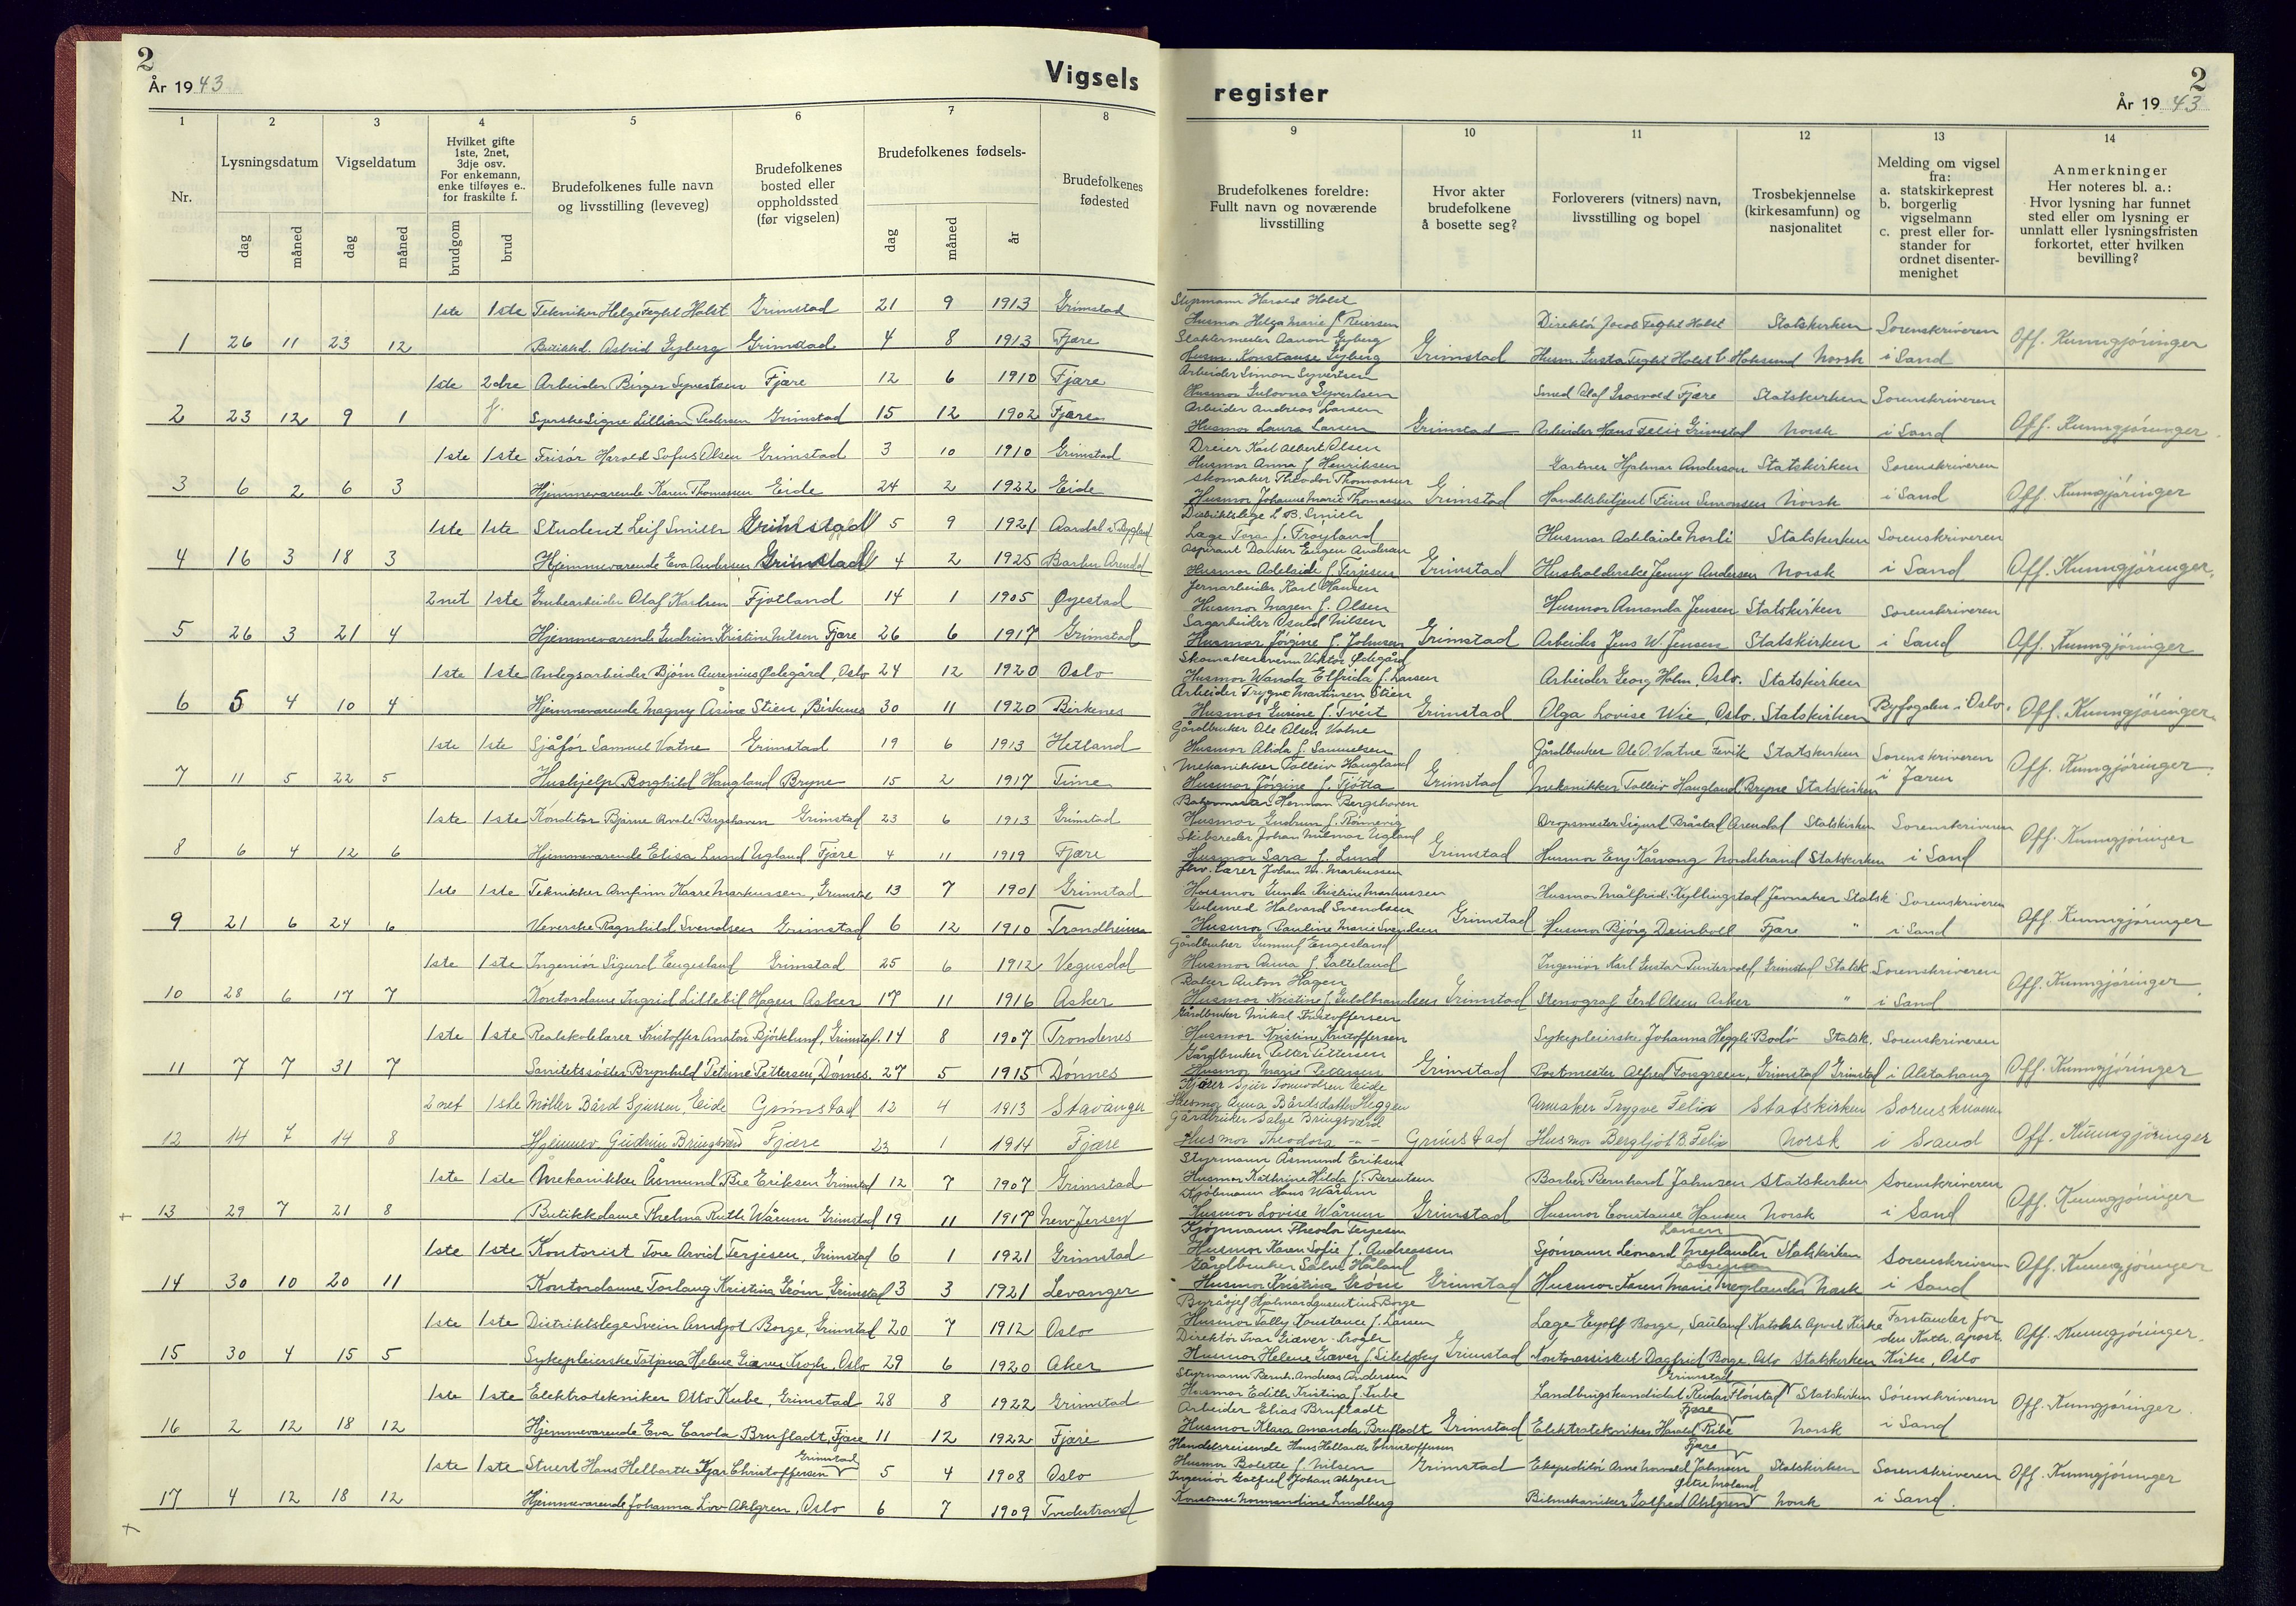 2
År 1943
Vigsels
register
2
År 1943
1 2 3 4 5 6 7 8 9 10 11 12 13 14
Nr.
Lysningsdatum
dag måned
Vigseldatum
dag måned
Hvilket gifte
1ste, 2net,
3dje osv.
For enkemann,
enke tilføyes e..
for fraskilte f.
brudgom brud
Brudefolkenes fulle navn
og livsstilling (leveveg)
Brudefolkenes
bosted eller
oppholdssted
(før vigselen)
Brudefolkenes fødsels-
dag måned år
Brudefolkenes
fødested
Brudefolkenes foreldre:
Fullt navn og noværende
livsstilling
Hvor akter
brudefolkene
å bosette seg?
Forloverers (vitners) navn,
livsstilling og bopel
Trosbekjennelse
(kirkesamfunn) og
nasjonalitet
Melding om vigsel
fra:
a. statskirkeprest
b. borgerlig
vigselmann
c. prest eller for-
stander for
ordnet disenter-
menighet
Anmerkninger
Her noteres bl. a.:
Hvor lysning har funnet
sted eller om lysning er
unnlatt eller lysningsfristen
forkortet, etter hvilken
bevilling?
1ste 1ste Tekniker Helge Feght Holst Grimstad 21 9 1913 Grimstad
1 26 11 23 12 Butikkd. Astrid Gyberg Grimstad 4 8 1913 Fjære
Styrmann Harald Holst
Husmor Helga Marie f. Reiersen
Slaktermester Aanon Gyberg
Husm. Konstanse Gyberg
Grimstad
Direktör Jacob Feght Holst Statskirken Sorenskriveren
Husm. Gusta Feght Holst Hokksund Norsk i Sand Off. Kunngjöringer
1ste 2dre Arbeider Birger Syvertsen Fjære 12 6 1910 Fjære
2 23 12 9 1 f. Syerske Signe Lillian Pedersen Grimstad 15 12 1902 Fjære
Arbeider Simon Syvertsen
Husmor Gulovna Syvertsen
Arbeider Andreas Larsen
Husmor Laura Larsen
Grimstad
Smed Olaf Grosvold Fjære Statskirken Sorenskriveren
Arbeider Hans Felix Grimstad Norsk i Sand Off. Kunngjöringer
1ste 1ste Frisör Harald Sofus Olsen Grimstad 3 10 1910 Grimstad
3 6 2 6 3 Hjemmeværende Karen Thomassen Eide 24 2 1922 Eide
Dreier Karl Albert Olsen
Husmor Anna f. Henriksen
Skomaker Theodor Thomassen
Husmor Johanne Marie Thomassen
Grimstad
Gartner Hjalmar Anderson Statskirken Sorenskriveren
Handelsbetjent Finn Simonsen Norsk i Sand Off. Kunngjöringer
1ste 1ste Student Leif Smith Grimstad 5 9 1921 Aardal i Bygland
4 16 3 18 3 Hjemmeværende Eva Andersen Grimstad 4 2 1925 Barbu Arendal
Distriktslege L. B. Smith
Lage Tora f. Fröyland
Aspirant Danker Eugen Andersen
Husmor Adelaide f. Terjesen
Grimstad
Husmor Adelaide Norli Statskirken Sorenskriveren
Husholderske Jenny Andersen Norsk i Sand Off. Kunngjöringer
2net 1ste Grubearbeider Olaf Karlsen Fjotland 14 1 1905 Øyestad
5 26 3 21 4 Hjemmeværende Gudrun Kristine Nilsen Fjære 26 6 1917 Grimstad
Jernarbeider Karl Hansen
Husmor Maren f. Olsen
Sagarbeider Osuld Nilsen
Husmor Jörgine f. Johnsen
Grimstad
Husmor Amanda Jensen Statskirken Sorenskriveren
Arbeider Jens W. Jensen Statskirken i Sand Off. Kunngjöringer
1ste 1ste Anlegsarbeider Björn Aurenius Ødegård, Oslo 24 12 1920 Oslo
6 5 4 10 4 Hjemmeværende Magny Åsine Stien, Birkenes 30 11 1920 Birkenes
Skomakersvenn Viktor Ødegård
Husmor Wanda Elfrida f. Larsen
Arbeider Trygve Martinsen Stien
Husmor Gurine f. Tveit
Grimstad
Arbeider Georg Holm, Oslo. Statskirken
Olga Lovise Wie, Oslo. Statskirken Byfogden i Oslo. Off. Kunngjöringer
1ste 1ste Sjåfór Samuel Vatne Grimstad 19 6 1913 Hetland
7 11 5 22 5 Hushjelp Borghild Haugland Bryne 15 2 1917 Time
Gårdbruker Ole Olsen Vatne
Husmor Alida f. Samuelsen
Mekanikker Tolleiv Haugland
Husmor Jörgine f. Tjötta
Grimstad
Gårdbruker Ole O. Vatne Fevik Statskirken Sorenskriveren
Mekanikker Tolleiv Haugland, Bryne Statskirken i Jæren Off. Kunngjöringer
1ste 1ste Konditor Bjarne Arvale Bergshaven Grimstad 23 6 1913 Grimstad
8 6 4 12 6 Hjemmeværende Elisa Lund Ugland Fjære 4 11 1919 Fjære
Bakermester Herman Bergshaven
Husmor Gudrun f. Rønnevig
Skibsreder Johan Milmar Ugland
Husmor Sara f. Lund
Grimstad
Dropsmester Sigurd Bråstad Arendal Statskirken Sorenskriveren
Husmor Eny Kåsvang Nordstrand Statskirken i Sand Off. Kunngjöringer
1ste 1ste Teknikker Amfinn Kaare Markussen, Grimstad 13 7 1901 Grimstad
9 21 6 24 6 Veverske Ragnhild Svendsen Grimstad 6 12 1910 Trondheim
fhv. Lærer Johan M. Markussen
Husmor Gunda Kristine Markussen
Gulsmed Halvard Svendsen
Husmor Pauline Marie Svendsen
Grimstad
Husmor Målfrid Kyllingstad Jevnaker Statsk Sorenskriveren
Husmor Bjórg Deinboll Fjære " i Sand Off. Kunngjöringer
1ste 1ste Ingeniör Sigurd Engesland Grimstad 25 6 1912 Vegusdal
10 28 6 17 7 Kontordame Ingrid Lillebil Hagen Asker 17 11 1916 Asker
Gårdbruker Gunnuf Engesland
Husmor Anna f. Galteland
Baker Anton Hagen
Husmor Kristine f. Guldbrandsen
Grimstad
Ingeniör Karl Gustav Puntervold, Grimstad Statsk Sorenskriveren
Stenograf Gerd Olsen Asker " i Sand Off. Kunngjöringer
1ste 1ste Realskolelærer Kristoffer Anaton Björklund, Grimstad. 14 8 1907 Trondenes
11 7 7 31 7 Sanitetssöster Brynhild Petrine Pettersen, Dönnes. 27 5 1915 Dönnes
Gårdbruker Mikal Kristoffersen
Husmor Kristine Kristoffersen
Gårdbruker Petter Pettersen
Husmor Marie Pettersen
Grimstad
Sykepleierske Johanna Heggli Bodö Statsk. Sorenskriveren
Postmester Alfred Forsgreen, Grimstad Grimstad i Alstahaug Off. Kunngjöringer
2net 1ste Möller Bård Sjursen, Eide Grimstad 12 4 1913 Stavanger
12 14 7 14 8 Hjemmev. Gudrun Bringsværd Fjære 23 1 1914 Fjære
Kjörer Sjur Tonnodsen Eide
Husmor Anna Bårdsdatter Heggen
Gårdbruker Salve Bringsværd
Husmor Theodora -"-
Grimstad
Urmaker Trygve Felix Statskirken Sorenskriveren
Husmor Bergljot B. Felix Norsk i Sand Off. Kunngjöringer
1ste 1ste Mekanikker Åsmund Bie Eriksen Grimstad 12 7 1907 Grimstad
+ 13 29 7 21 8 Butikkdame Thelma Ruth Wårum Grimstad 19 11 1917 New Jersey
Styrmann Åsmund Eriksen
Husmor Kathrine Hilda f. Berentsen
Kjöbmann Hans Wårum
Husmor Lovise Wårum
Grimstad
Barber Bernhard Johnsen Statskirken Sorenskriveren
Husmor Constanse Hansen Norsk i Sand Off. Kunngjöringer
1ste 1ste Kontorist Tore Arvid Terjesen, Grimstad 6 1 1921 Grimstad
14 30 10 20 11 Kontordame Torlaug Kristina Gröm, Grimstad 3 3 1921 Levanger
Kjöpmann Theodor Terjesen
Husmor Karen Sofie f. Andreassen
Gårdbruker Salve Håland
Husmor Kristina Gröm
Grimstad
Larsen
Sjömann Leonard Treglander Statskirken Sorenskriveren
Husmor Karen Marie Treglander Norsk i Sand Off. Kunngjöringer
1ste 1ste Distriktslege Svein Arndgot Borge, Grimstad 20 7 1912 Oslo
15 30 4 15 5 Sykepleierske Tatjana Helene Giæver Krogh, Oslo 29 6 1920 Aker
Byråsjef Hjalmar Laurentius Borge
Husmor Tally Konstance f. Larsen
Direktör Ivar Giæver-Krogh
Husmor Helene Giæver f. Siteljsky
Grimstad
Lage Eyolf Borge, Sauland Katolsk Apost. Kirke Forstander for
den Kath. Apost.
Kontorassistent Dagfrid Borge Oslo Statskirken Kirke, Oslo Off. Kunngjöringer.
1ste 1ste Elektrotekniker Otto Kube, Grimstad 28 8 1922 Grimstad
16 2 12 18 12 Hjemmeværende Eva Carola Brufladt, Fjære 11 12 1922 Fjære
Styrmann Bernh. Andreas Andersen
Husmor Edith Kristina f. Kube
Arbeider Elias Brufladt
Husmor Klara Amanda Brufladt
Grimstad
Grimstad
Landbrugskandidat Reidar Flörstad Statskirken Sorenskriveren
Fjære
Elektrotekniker Harald Ribe Norsk i Sand Off. Kunngjöringer.
Grimstad
1ste 1ste Stuert Hans Helbarth Kjær Christoffersen 5 4 1908 Oslo
+ 17 4 12 18 12 Hjemmeværende Johanna Liv Ahlgren, Oslo 6 7 1909 Tvedestrand
Handelsreisende Hans Helbarth Christoffersen
Husmor Bolette f. Nilsen
Ingeniör Gotfred Johan Ahlgren
Konstanse Normandine Lundberg
Grimstad
Fjære
Ekspeditör Arne Norvald Johnsen Statskirken Sorenskriveren
Østre Moland
Bilmekaniker Gotfred Ahlgren Norsk i Sand. Off. Kunngjöringer